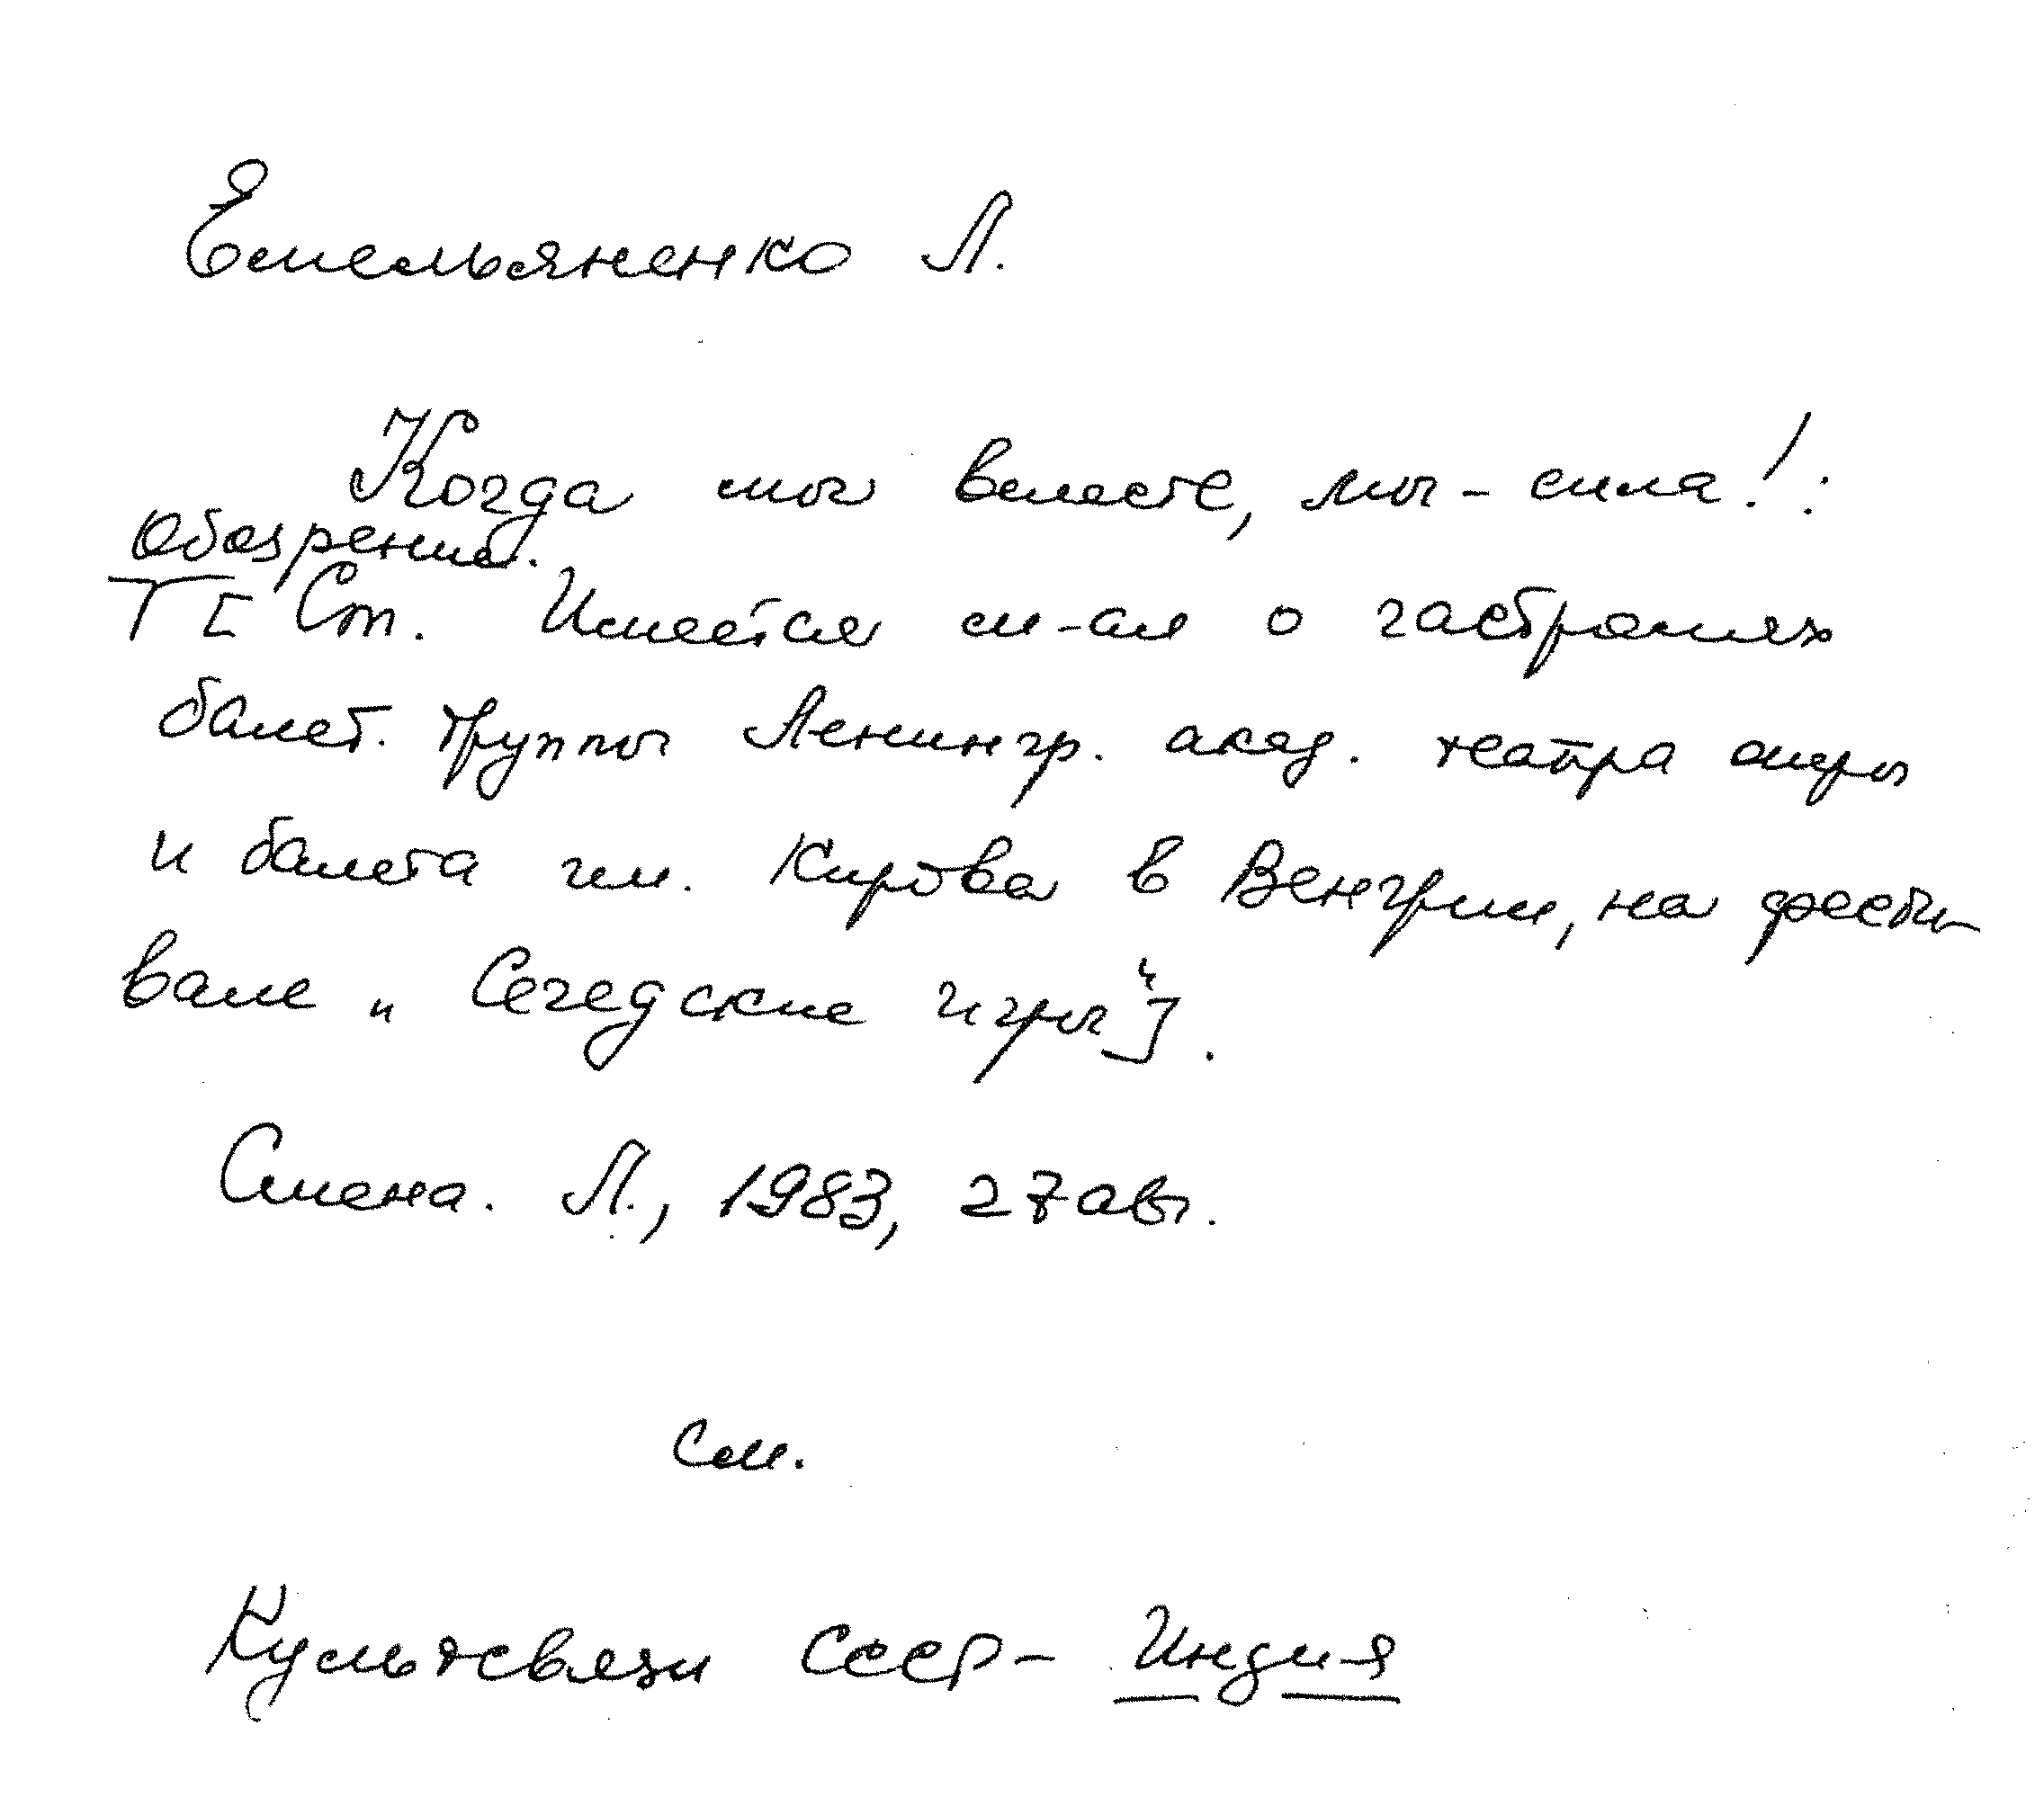 Емельяненко Л.
Когда мы вместе, мы - сила! :
Обозрение.
[Ст. Имеется м-ал о гастролях
балет. труппы Ленингр. акад. театра оперы
и балета им. Кирова в Венгрии, на фести-
вале „Сегедские игры"].
Смена. Л., 1983, 27 авг.
см.
Культсвязи СССР - Индия